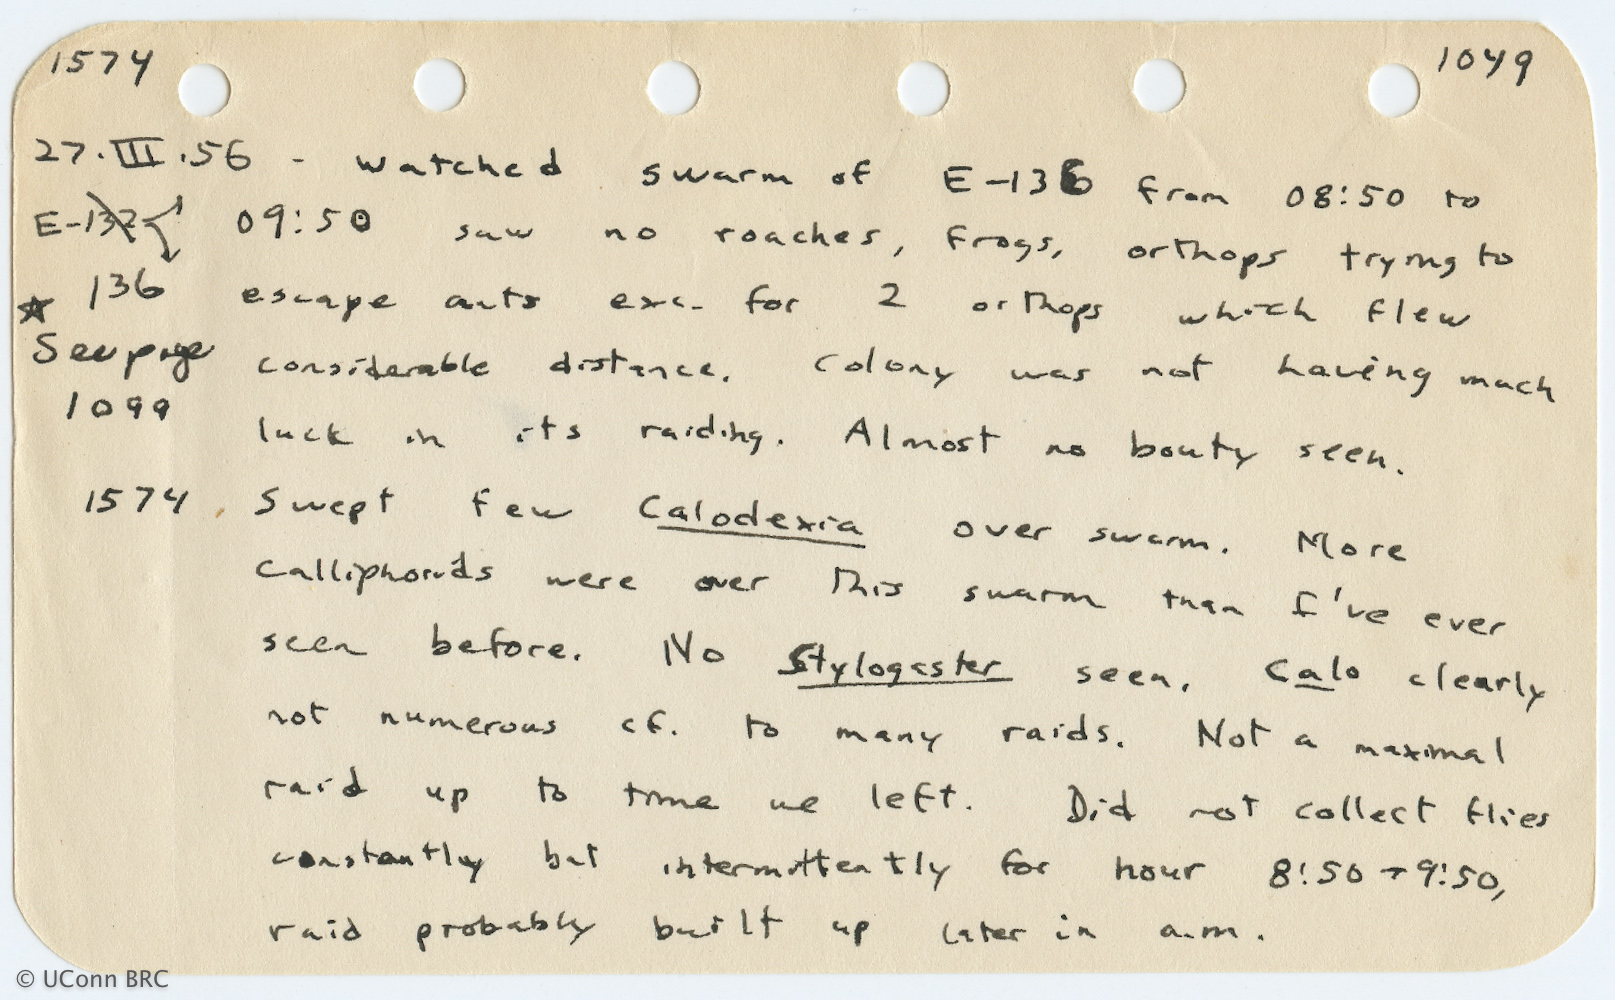 1574 1049
27.III.56 - watched swarm of E-136 from 08:50 to
E-132 09:50 saw no roaches, frogs, orthops trying to
136 escape ants exc. for 2 orthops which flew
See page considerable distance. Colony was not having much
1099 luck in its raiding. Almost no booty seen.
1574. Swept few Calodexia over swarm. More
Calliphorids were over this swarm than I've ever
seen before. No Stylogaster seen. Calo clearly
not numerous cf. to many raids. Not a maximal
raid up to time we left. Did not collect flies
constantly but intermittently for hour 8:50-9:50,
raid probably built up later in a.m.
© UConn BRC